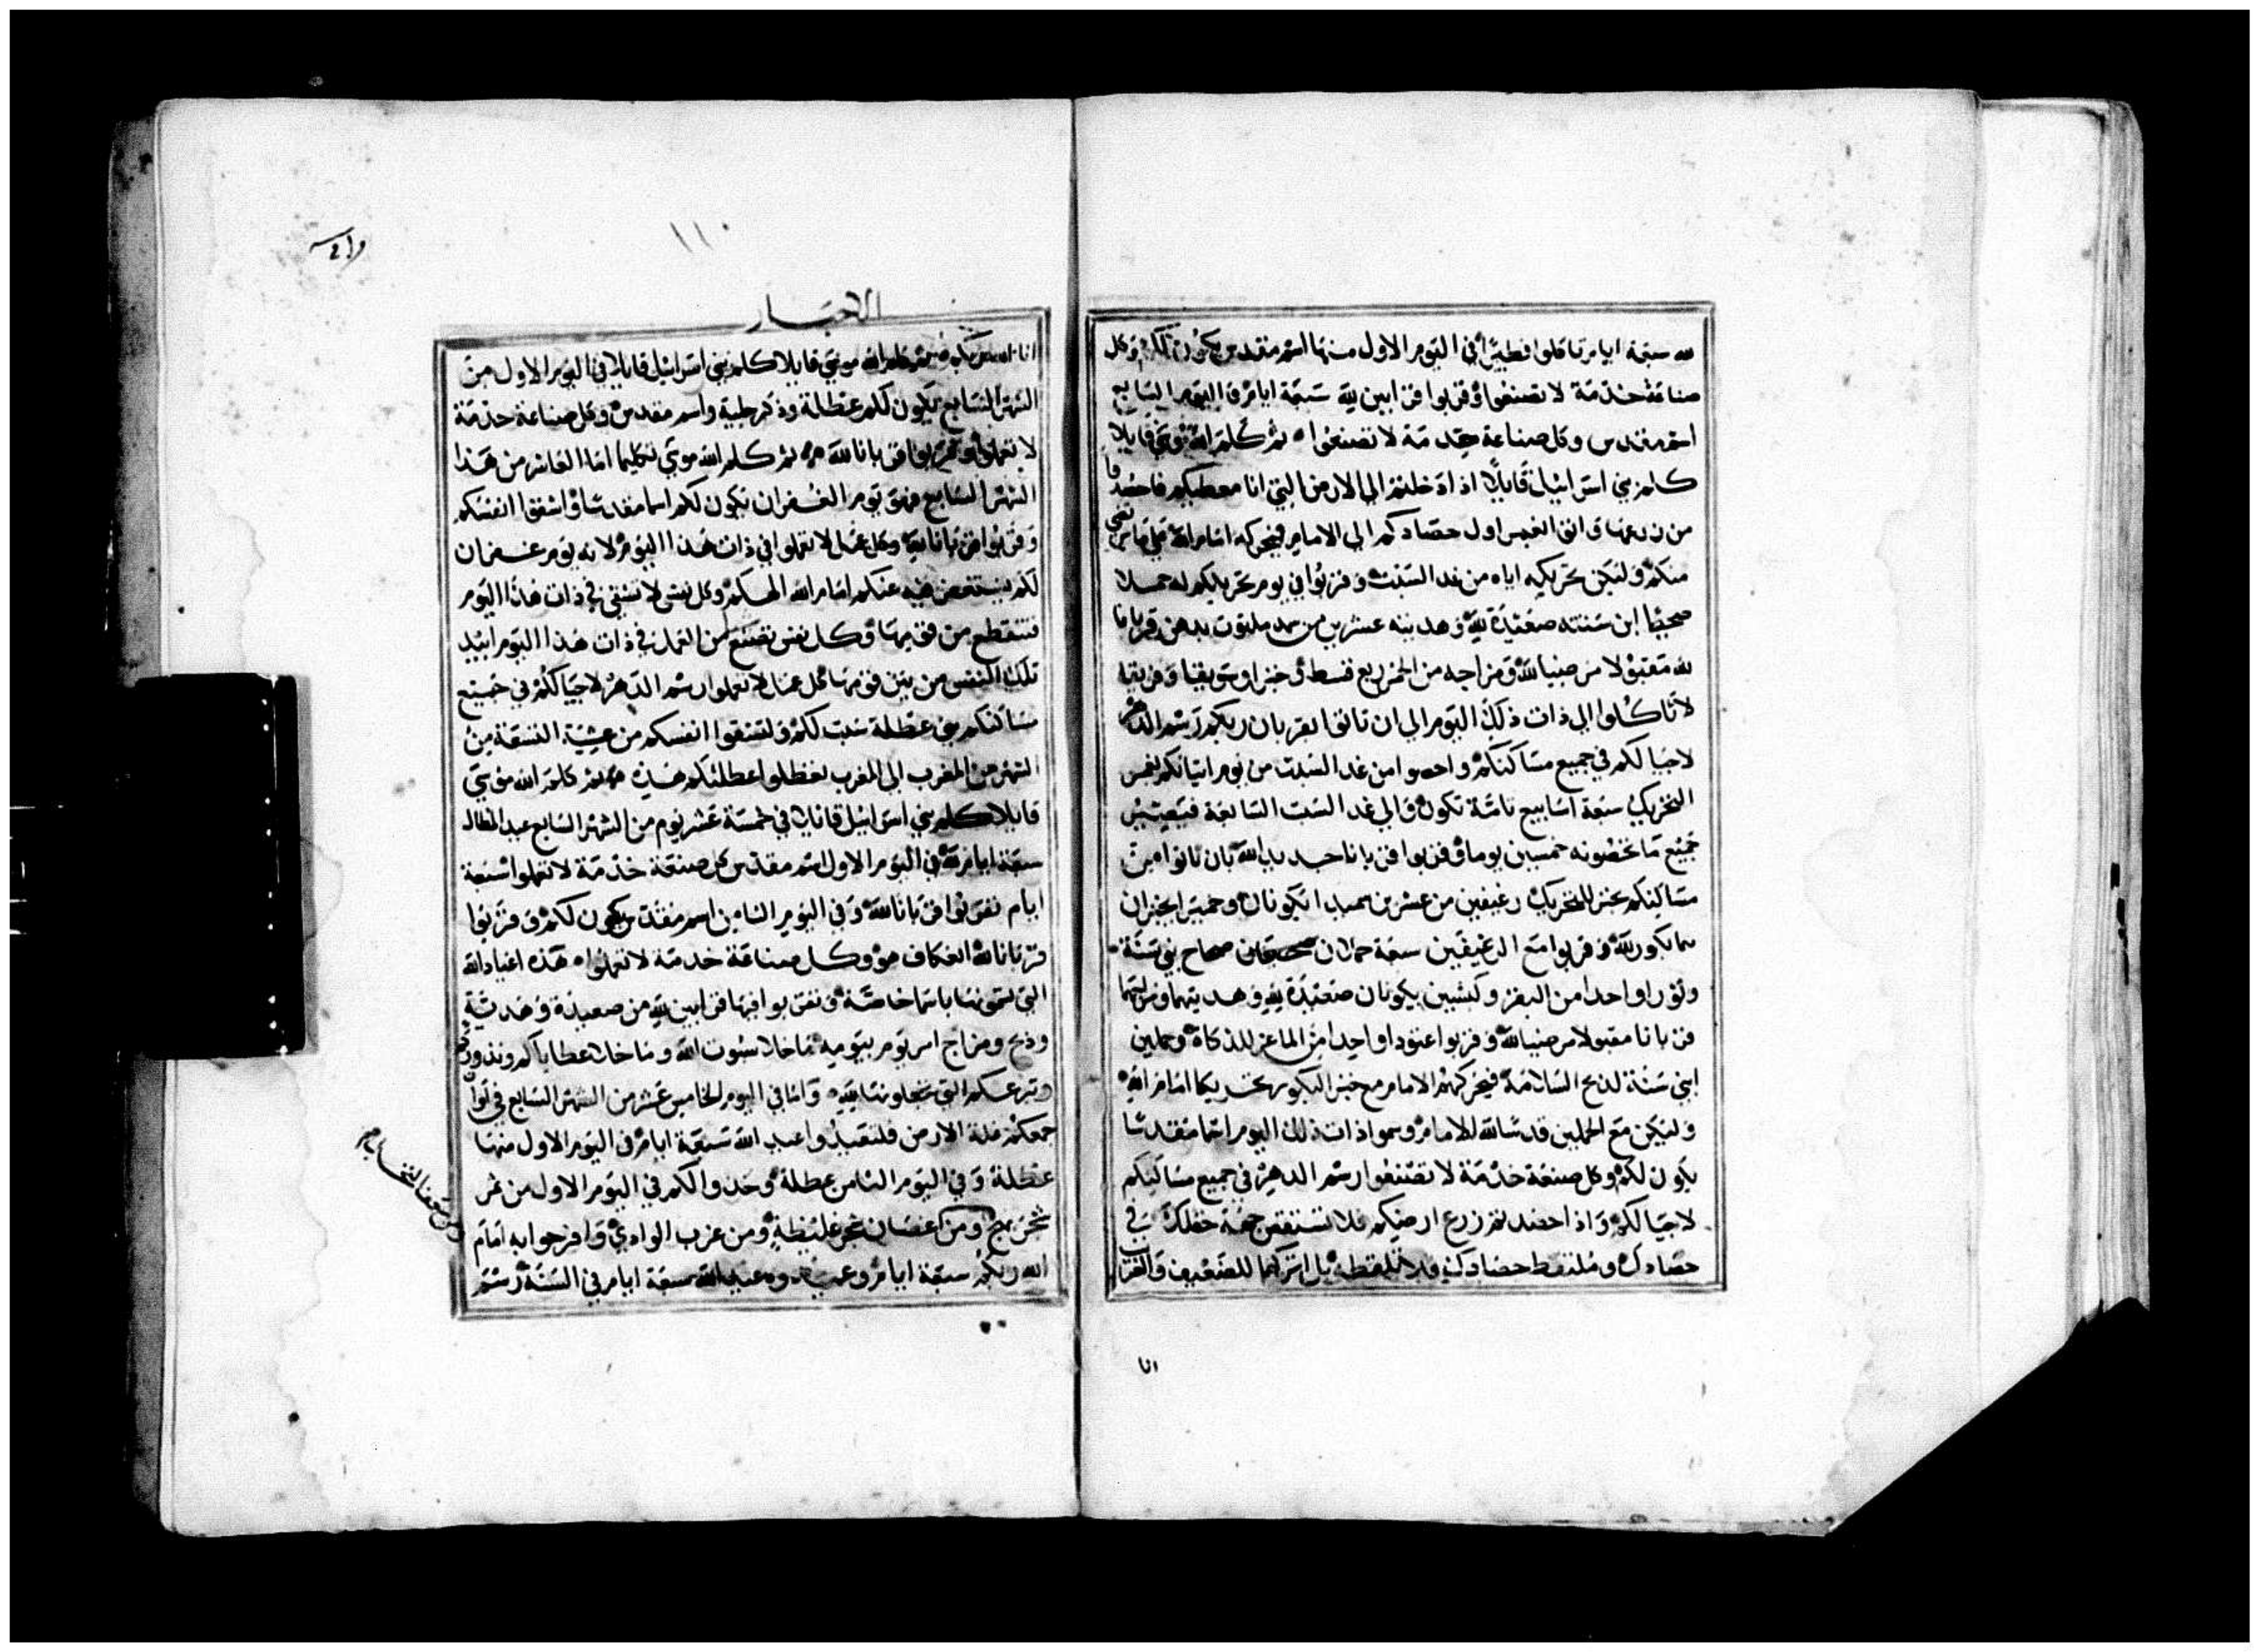 لله سبعة ايام تاكلوا فطيرًا في اليوم الاول منها اسم مقدس يكون لكم وكل
صناعة خدمة لا تصنعوا وقربوا قرابين لله سبعة ايام في اليوم السابع
اسم مقدس وكل صناعة خدمة لا تصنعوا ثم كلم الله موسي قايلا
كلم بني اسرائيل قايلًا اذا دخلتم الي الارض التي انا معطيكم فاحصدوا
من زرعها واتوا اول حصادكم الي الامام فيحركه امام الله
منكم وليكن تحريكه اياه من غد السبت وقربوا في يوم تحريككم له حملا
صحيحًا ابن سنته صعيدة لله وهديته عشرين من سميد ملتوت بدهن قربانا
لله مقبولا مرضيا لله ومزاجه من الخمر ربع قسط وخبزا وسويقا وفريقه
لا تاكلوا الي ذات ذلك اليوم الي ان تاتوا بقربان ربكم رسم الدهر
لاجيالكم في جميع مساكنكم واحصوا من غد السبت من يوم اتيانكم
التحريك سبعة اسابيع تامة تكون والي غد السبت السابعة
جميع ما تحصونه خمسين يوما وقربوا قربانا جديدا لله بان تاتوا من
مساكنكم بخبز للتحريك رغيفين من عشرين سميدا تكونان وخميرا يخبزان
بكور لله وقربوا مع الرغيفين سبعة حملان صحاح بني سنة
وثورا واحدا من البقر وكبشين يكونان صعيدة لله وهديتهما ومزاجهما
قربانا مقبولا مرضيا لله وقربوا عتودا واحدا من الماعز للذكاة وحملين
ابني سنة لذبح السلامة فيحركهم الامام مع خبز البكور تحريكا امام الله
وليكن مع الحملين قدسًا لله للامام وسموا ذات ذلك اليوم اسما مقدسًا
يكون لكم وكل صنعة خدمة لا تصنعوا رسم الدهر في جميع مساكنكم
لاجيالكم واذا حصدتم زرع ارضكم فلا تستقص جهة حقلك في
حصادك وملتقط حصادك فلا تلتقطه بل اتركها للضعيف والغريب
انا
١١٠
الاحبار
انا الله ربكم ثم كلم الله موسي قايلا كلم بني اسرائيل قايلا في اليوم الاول من
الشهر السابع يكون لكم عطلة وذكر جلبة واسم مقدس وكل صناعة خدمة
لا تعملوا وقربوا قربانا لله ثم كلم الله موسي تكليما اما العاشر من هذا
الشهر السابع فهو يوم الغفران يكون لكم اسما مقدسًا واشقوا انفسكم
وقربوا قربانا لله وكل عمل لا تعملوا في ذات هذا اليوم لانه يوم غفران
لكم يستغفر فيه عنكم امام الله الهكم وكل نفس لا تشقي في ذات هذا اليوم
فتنقطع من قومها وكل نفس تصنع من العمل في ذات هذا اليوم ابيد
تلك النفس من بين قومها كل عمل لا تعملوا رسم الدهر لاجيالكم في جميع
مساكنكم هي عطلة سبت لكم ولتشقوا انفسكم من عشية التسعة من
الشهر من المغرب الي المغرب تعطلوا عطلتكم هذه ثم كلم الله موسي
قايلا كلم بني اسرائيل قايلا في خمسة عشر يوم من الشهر السابع عيد المظال
سبعة ايام لله في اليوم الاول اسم مقدس كل صنعة خدمة لا تعملوا سبعة
ايام تقربوا قربانا لله وفي اليوم الثامن اسم مقدس يكون لكم وقربوا
قربانا لله اعتكاف هو وكل صناعة خدمة لا تعملوا هذه اعياد الله
التي تسمونها باسما خاصة وتقربوا فيها قرابين لله من صعيدة وهدية
وذبح ومزاج امر يوم بيومه ما خلا سبوت الله وما خلا عطاياكم ونذوركم
وتبرعكم التي تجعلونها لله واما في اليوم الخامس عشر من الشهر السابع في اوان
جمعكم غلة الارض فلتعيدوا عيد الله سبعة ايام في اليوم الاول منها
عطلة وفي اليوم الثامن عطلة وخذوا لكم في اليوم الاول من ثمر
شجر ومن اغصان شجر غليظة ومن غرب الوادي وافرحوا به امام
الله ربكم سبعة ايام وعيدوه عيد الله سبعة ايام في السنة رسم